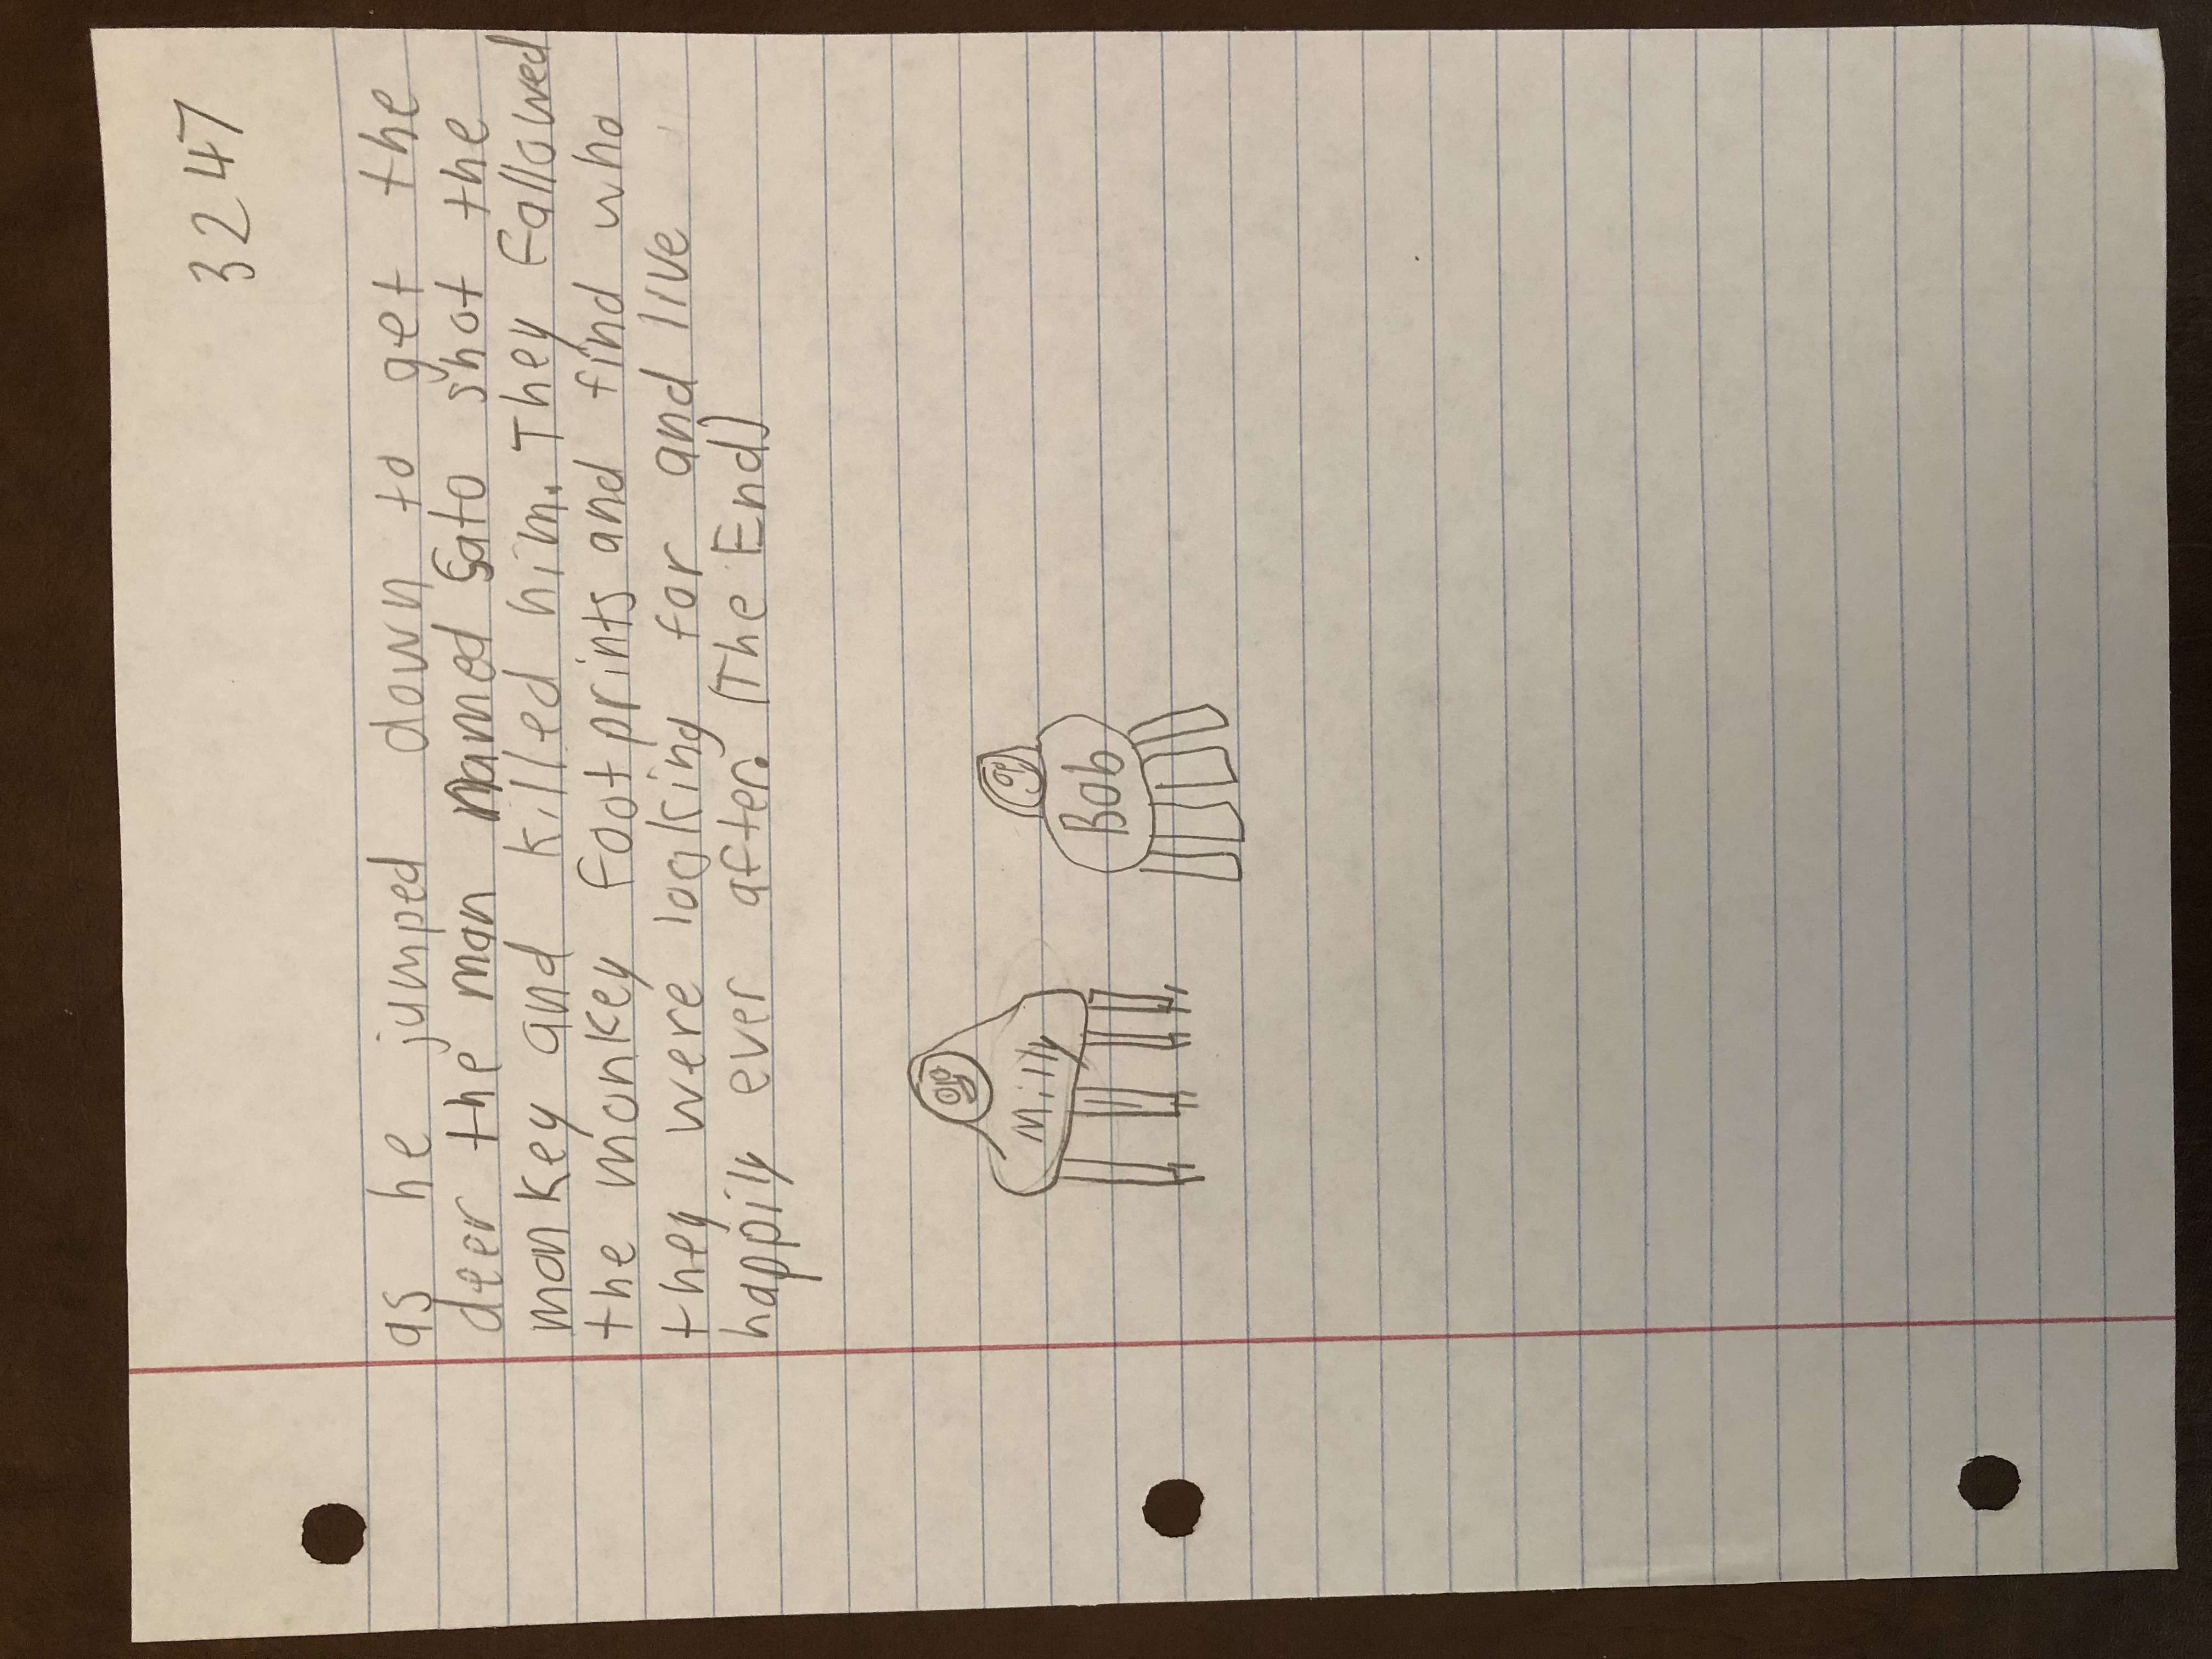 3247
as he jumped down to get the
deer the man named Sato shot the
monkey and killed him. They fallowed
the monkey footprints and find who
they were looking for and live
happily ever after. (The End)
Milly
Bob